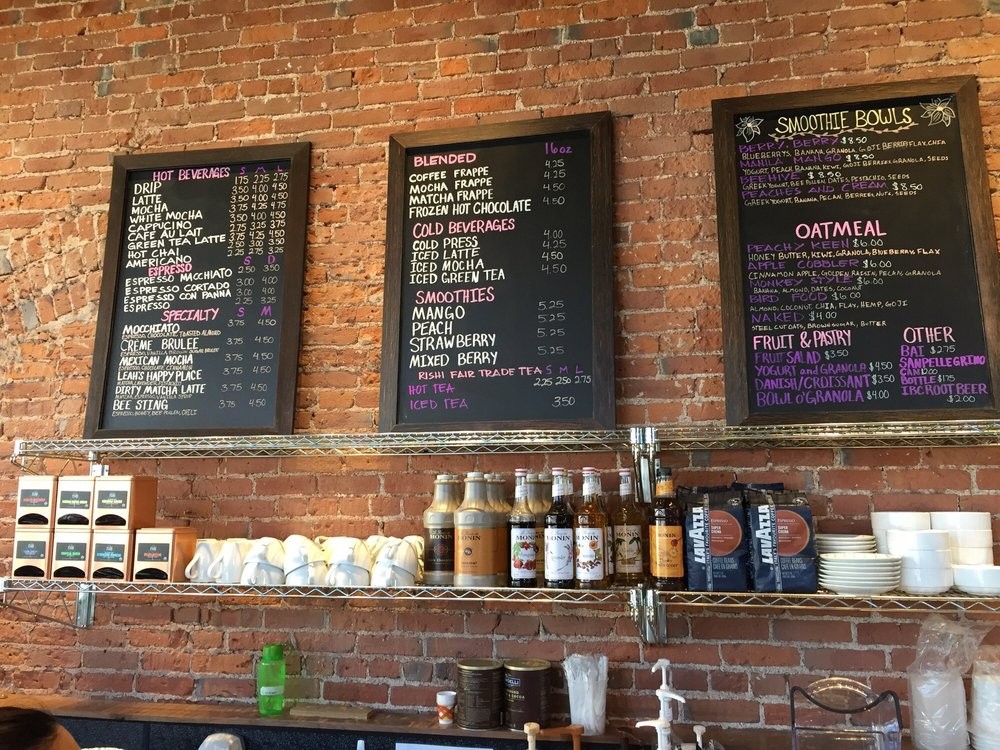 HOT BEVERAGES S M L
DRIP 1.75 2.25 2.75
LATTE 3.50 4.00 4.50
MOCHA 3.50 4.00 4.50
WHITE MOCHA 3.50 4.00 4.50
CAPPUCINO 3.50 4.00 4.50
CAFE AU LAIT 2.75 3.25
GREEN TEA LATTE 3.75 4.25 4.50
HOT CHAI 2.50 3.00 3.50
AMERICANO 2.25 2.75 3.25
ESPRESSO S D
ESPRESSO MACCHIATO 2.50 3.50
ESPRESSO CORTADO 3.00 4.00
ESPRESSO CON PANNA 3.00 4.00
ESPRESSO 2.25 3.25
SPECIALTY S M
MOCCHIATO 3.75 4.50
ESPRESSO, CHOCOLATE, TOASTED ALMOND
CREME BRULEE 3.75 4.50
ESPRESSO, VANILLA, BROWN SUGAR BRULEE
MEXICAN MOCHA 3.75 4.50
ESPRESSO, CHOCOLATE, CINNAMON
LEAH'S HAPPY PLACE 3.75 4.50
DIRTY MATCHA LATTE 3.75 4.50
BEE STING 3.75 4.50
ESPRESSO, HONEY, BEE POLLEN, CHILI
BLENDED 16oz
COFFEE FRAPPE 4.25
MOCHA FRAPPE 4.25
MATCHA FRAPPE 4.50
FROZEN HOT CHOCOLATE 4.50
COLD BEVERAGES
COLD PRESS 4.00
ICED LATTE 4.25
ICED MOCHA 4.50
ICED GREEN TEA 4.50
SMOOTHIES
MANGO 5.25
PEACH 5.25
STRAWBERRY 5.25
MIXED BERRY 5.25
RISHI FAIR TRADE TEA S M L
HOT TEA 2.25 2.50 2.75
ICED TEA 3.50
SMOOTHIE BOWLS
BERRY BERRY $8.50
BLUEBERRYS, BANANA, GRANOLA, GOJI BERRY, FLAX, CHIA
MANILA MANGO $8.50
YOGURT, PEACH, BANANA, KIWI, GOJI BERRIES, GRANOLA, SEEDS
BEEHIVE $8.50
GREEK YOGURT, BEE POLLEN, DATES, PISTACHIO, SEEDS
PEACHES AND CREAM $8.50
GREEK YOGURT, BANANA, PECAN, BERRIES, NUTS, SEEDS
OATMEAL
PEACHY KEEN $6.00
HONEY BUTTER, KIWI, GRANOLA, BLUEBERRY, FLAX
APPLE COBBLER $6.00
CINNAMON APPLE, GOLDEN RAISIN, PECAN, GRANOLA
MONKEY STYLE $6.00
BANANA, ALMOND, DATES, COCONUT
BIRD FOOD $6.00
ALMOND, COCONUT, CHIA, FLAX, HEMP, GOJI
NAKED $4.00
STEEL CUT OATS, BROWN SUGAR, BUTTER
FRUIT & PASTRY
FRUIT SALAD $3.50
YOGURT and GRANOLA $4.50
DANISH/CROISSANT $3.50
BOWL O'GRANOLA $4.00
OTHER
BAI $2.75
SANPELLEGRINO
CAN $2.00
BOTTLE $1.75
IBC ROOT BEER
$2.00
MONIN
MONIN
MONIN
MONIN
MONIN
LAVAZZA
ESPRESSO
SUPER
CREMA
LAVAZZA
ESPRESSO
SUPER
CREMA